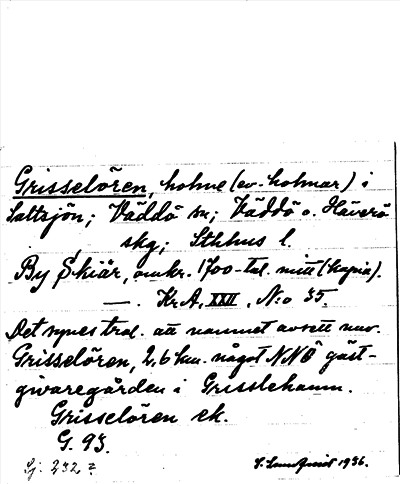 Grisselören, holme (ev. holmar) i
Saltsjön; Väddö sn; Väddö o. Häverö
skg; Sthlms l.
By Skiär, omkr. 1700-tal. mitt (kopia).
— . Kr.A. XXII, N:o 35.
Det synes trol. att namnet avsett nuv.
Grisselören, 2,6 km. något NNÖ gäst-
givaregården i Grisslehamn.
Grisselören ek.
G. 93.
Sj. 232 2
S. Lundqvist 1936.